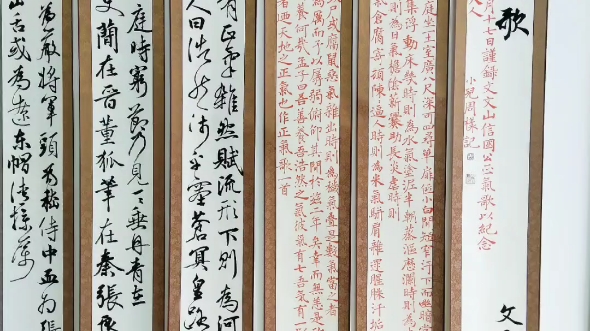 歌
文
月十七日謹録文文山信國公正氣歌以紀念
人
小兒周樣記
庭坐土室廣八尺深可四尋單扉低小白間短窄汙下而幽暗
集浮動床几時則為水氣塗泥半朝蒸漚歷瀾時則為
則為日氣檐陰薪爨助長炎虐時則
倉腐寄頓陳陳逼人時則為米氣駢肩雜遝腥臊汗垢
或腐鼠惡氣雜出時則為穢氣疊是數氣當之者
為厲而予以孱弱俯仰其間於茲二年矣幸而無恙是殆
養何哉孟子曰吾善養吾浩然之氣彼氣有七吾氣有一以
者迺天地之正氣也作正氣歌一首
有正氣雜然賦流形下則為河
人曰浩然沛乎塞蒼冥皇路
庭時窮節乃見一一垂丹青在
史簡在晉董狐筆在秦張良
為嚴將軍頭為嵇侍中血為張
山舌或為遼東帽清操厲